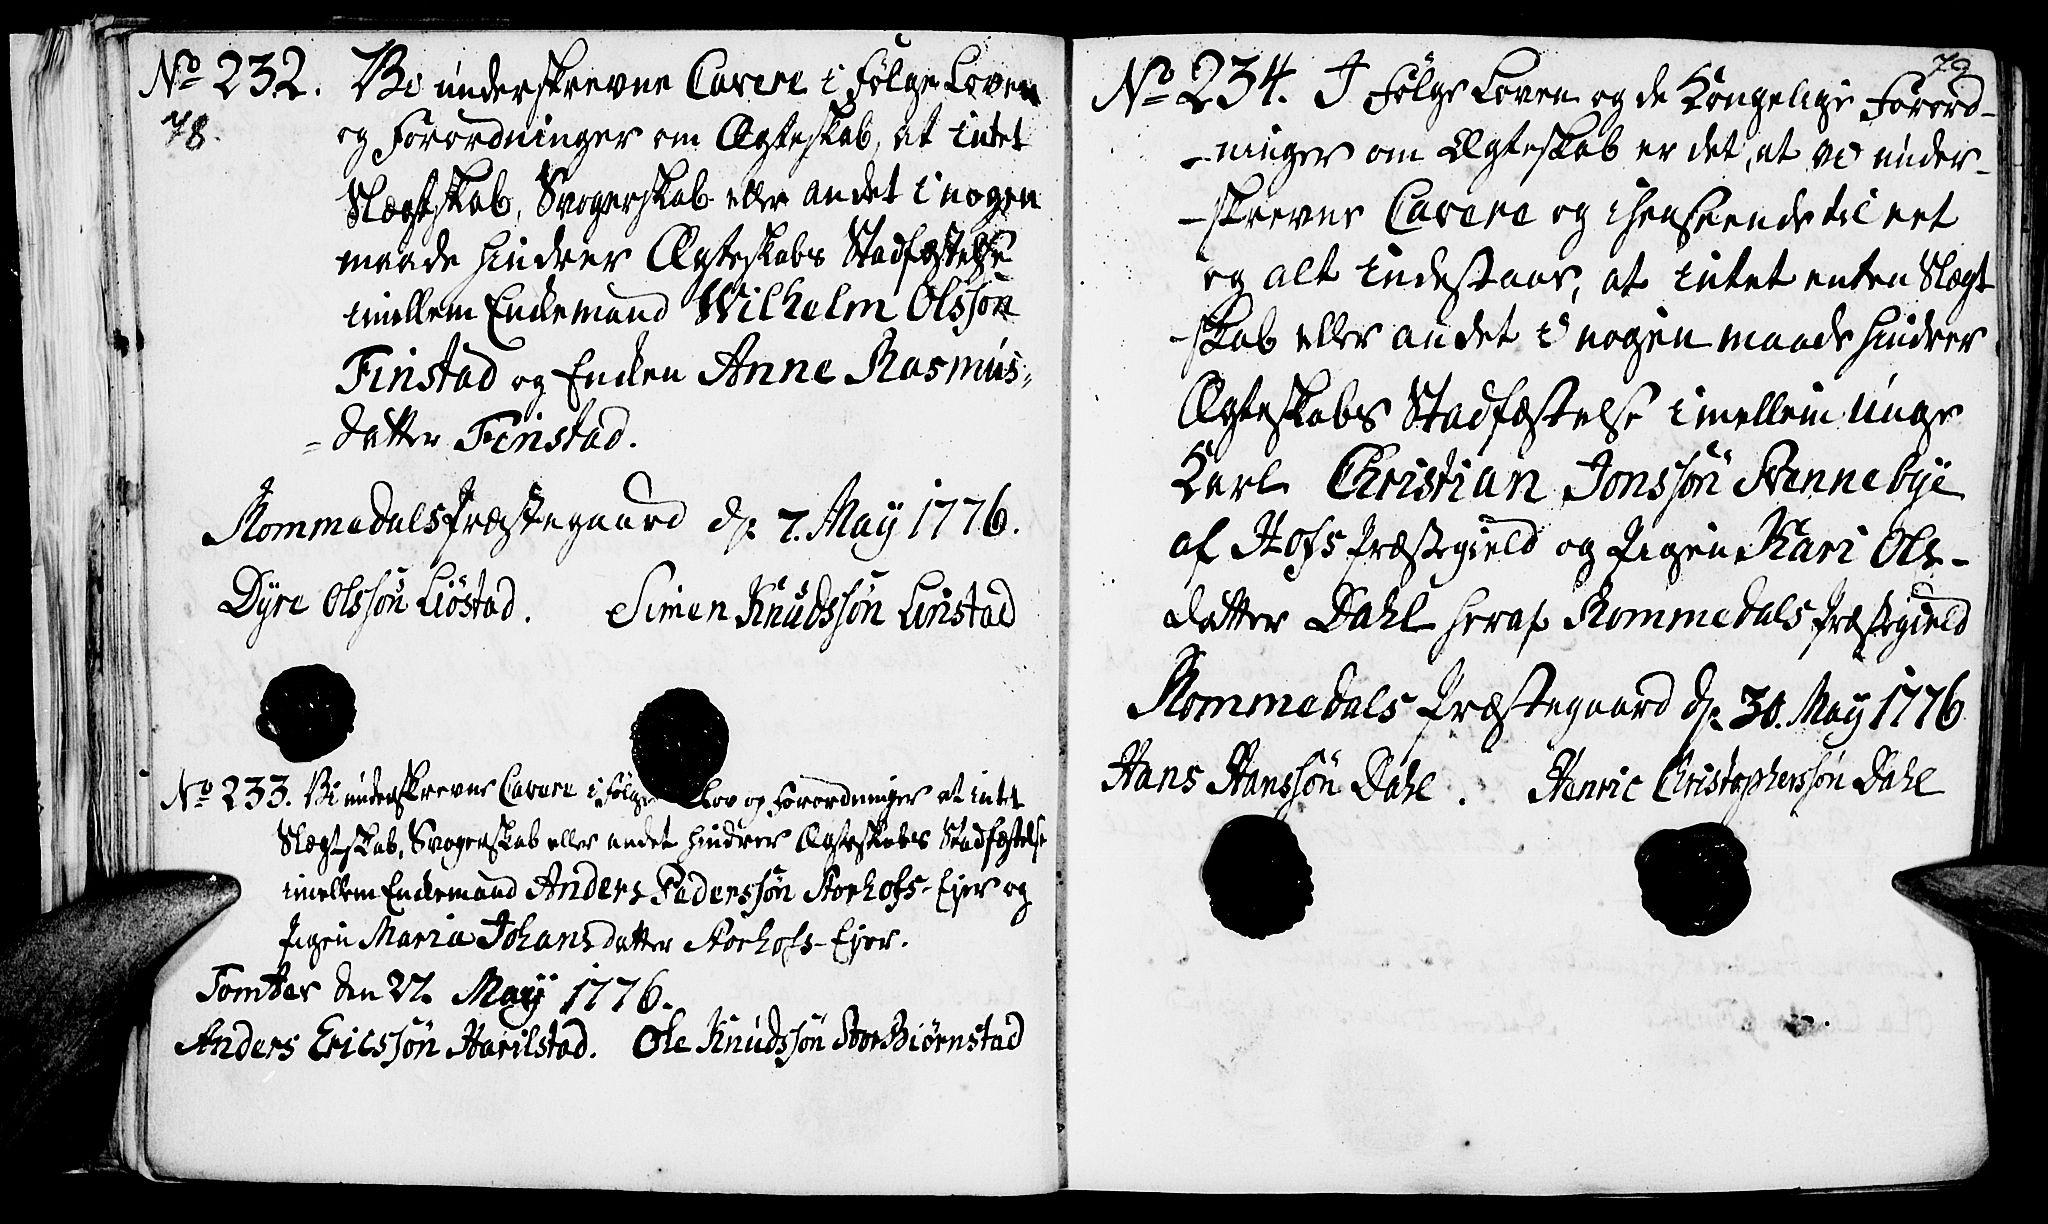 No 232. Vi underskrevne Cavere i følge Loven
78.
og Forordninger om Ægteskab, at intet
Slægtskab, Svogerskab eller andet i nogen
maade hindrer Ægteskabs Stadfæstelse
imellem Enkemand Wilhelm Olssøn
Finstad og Enken Anne Rasmus-
-datter Finstad.
Rommedals Præstegaard d. 7. May 1776.
Dyre Olssøn Liøstad. Simen Knudssøn Linstad
No 233. Vi underskrevne Cavere i følge Lov og Forordninger at intet
Slægtskab, Svogerskab eller andet hindrer Ægteskabs Stadfæstelse
imellem Enkemand Anders Pederssøn Storhofs-Ejer og
Pigen Maria Johansdatter Storhofs-Ejer.
Tomter den 22. May 1776.
Anders Ericssøn Harilstad. Ole Knudssøn StorBiørnstad
79
No 234. I følge Loven og de Kongelige Forord-
-ninger om Ægteskab er det, at vi under-
-skrevne Cavere og i henseende til eet
og alt indestaar, at intet enten Slægt
-skab eller andet i nogen maade hindrer
Ægteskabs Stadfæstelse imellem unge
Karl Christian Jonssøn Rennebye
af Hofs Præstegield og Pigen Kari Ols-
datter Dahl heraf Rommedals Præstegield
Rommedals Præstegaard d. 30. May 1776
Hans Hanssøn Dahl. Henric Christopherssøn Dahl